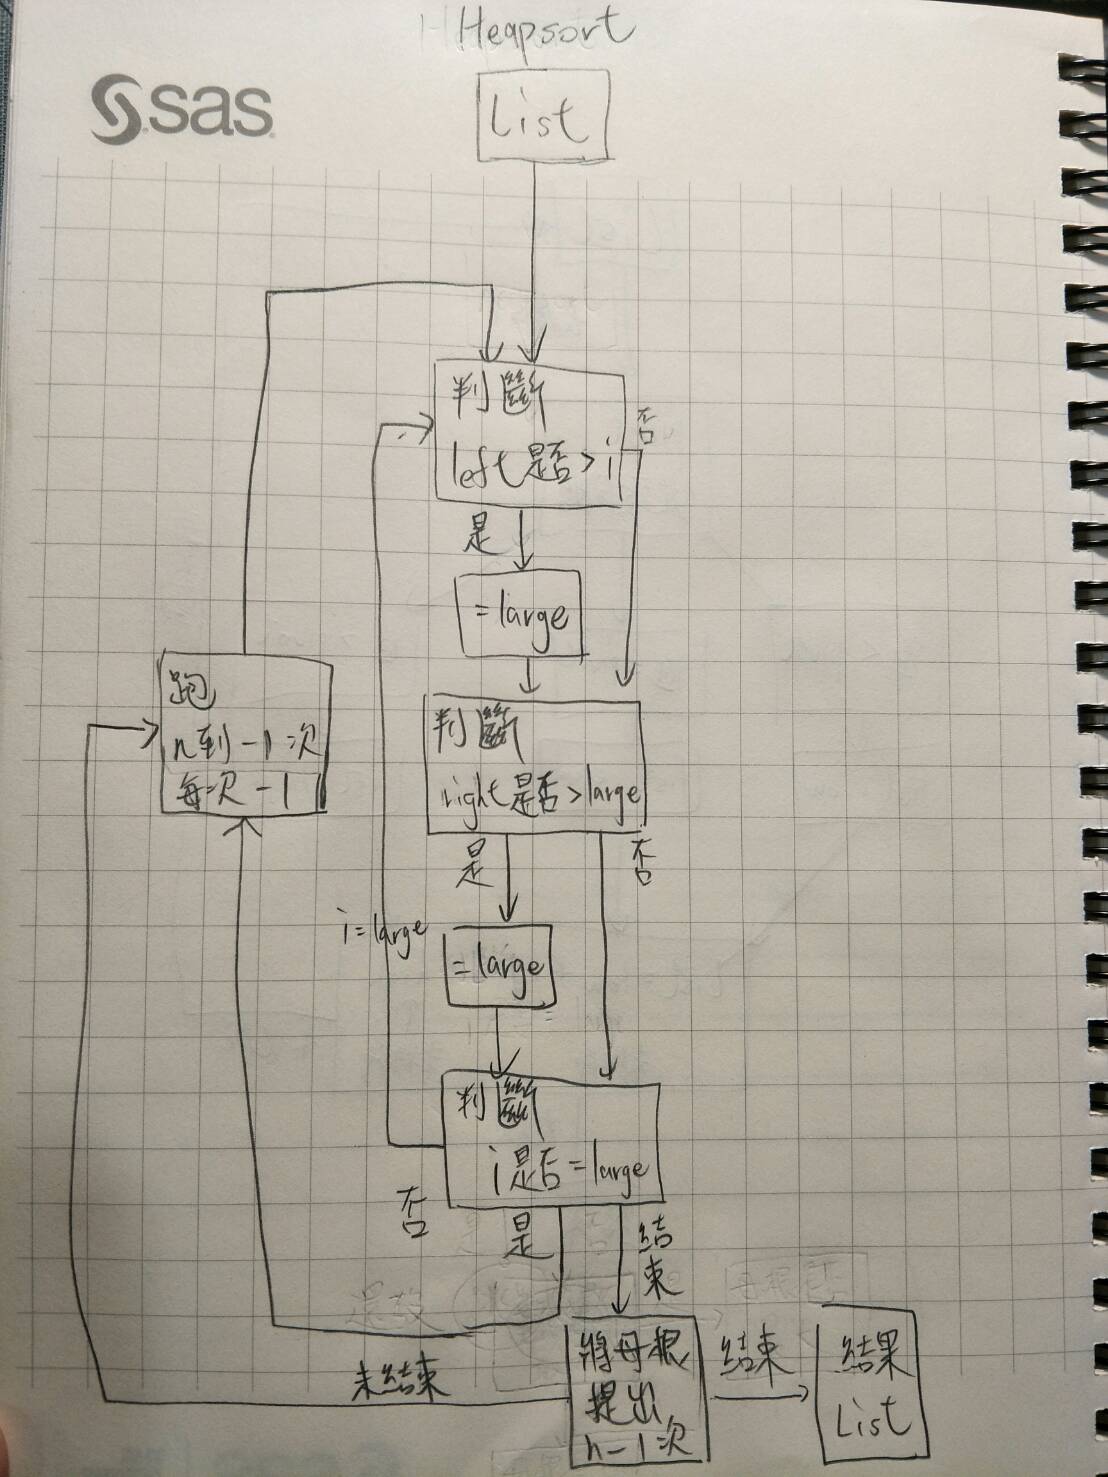 Heapsort
sas
List
判斷
left是否>i
否
是
=large
跑
n到-1次
每次-1
判斷
right是否>large
是
否
i=large
=large
判斷
i是否=large
否
是
結
束
未結束
將母根
提出
n-1次
結束
結果
List